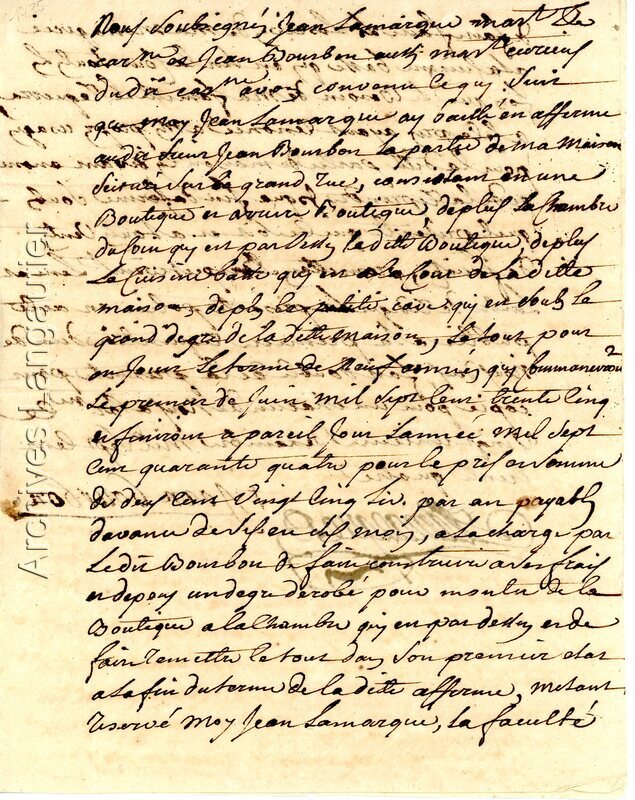 1735
Nous soubsignés Jean Lamarque mart de
carne et Jean Bourbon aussi mart
dudit carne avons convenu ce qui suit
que moy Jean Lamarque ay baillé en afferme
audit sieur Jean Bourbon la partie de ma maison
scituée sur la grand rue, consistant en une
Boutique et arriere Boutique, de plus la Chambre
du Coin qui est par dessus laditte Boutique, de plus
la Cuisine basse qui est a la Cour de la ditte
maison, de plus la petite cave qui est soubs le
grand degre de la ditte maison, Le tout pour
en jouir le terme de Neuf années qui
le premier de Juin mil sept cent trente cinq
et finiront a pareil Jour Lannée mil sept
cent quarante quatre pour le pris et somme
de deux cent vingt cinq liv. par an payable
davance de six en six mois, a la charge par
Le dit Bourbon de faire construire a ses frais
et depens un degre derobé pour monter de la
Boutique a la Chambre qui est par dessus et de
faire remettre le tout dans son premier etat
a la fin du terme de la ditte afferme, metant
reservé moy Jean Lamarque, la faculté
Archives Langautier